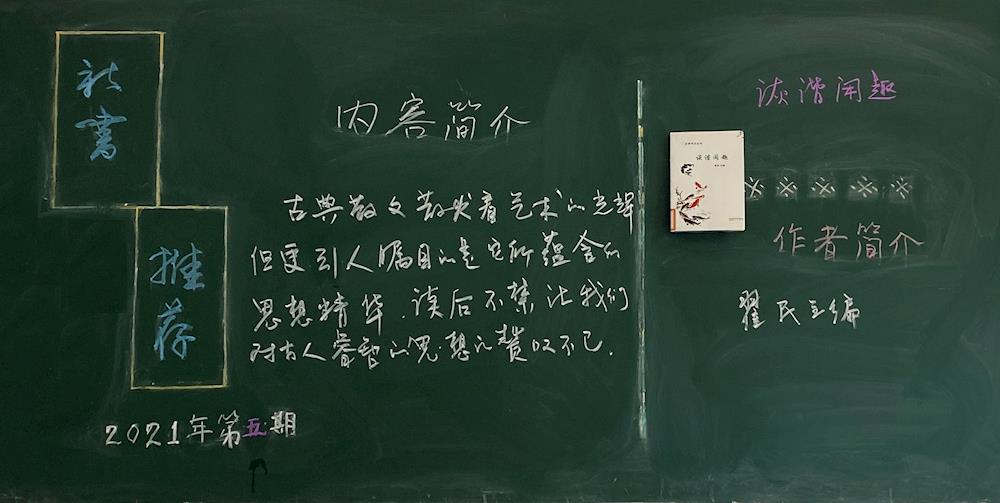 新书
推荐
2021年第五期
内容简介
古典散文散发着艺术的光辉
但更引人瞩目的是它所蕴含的
思想精华．读后不禁让我们
对古人睿智的思想的赞叹不已．
诙谐闲趣
诙谐闲趣
作者简介
翟民主编